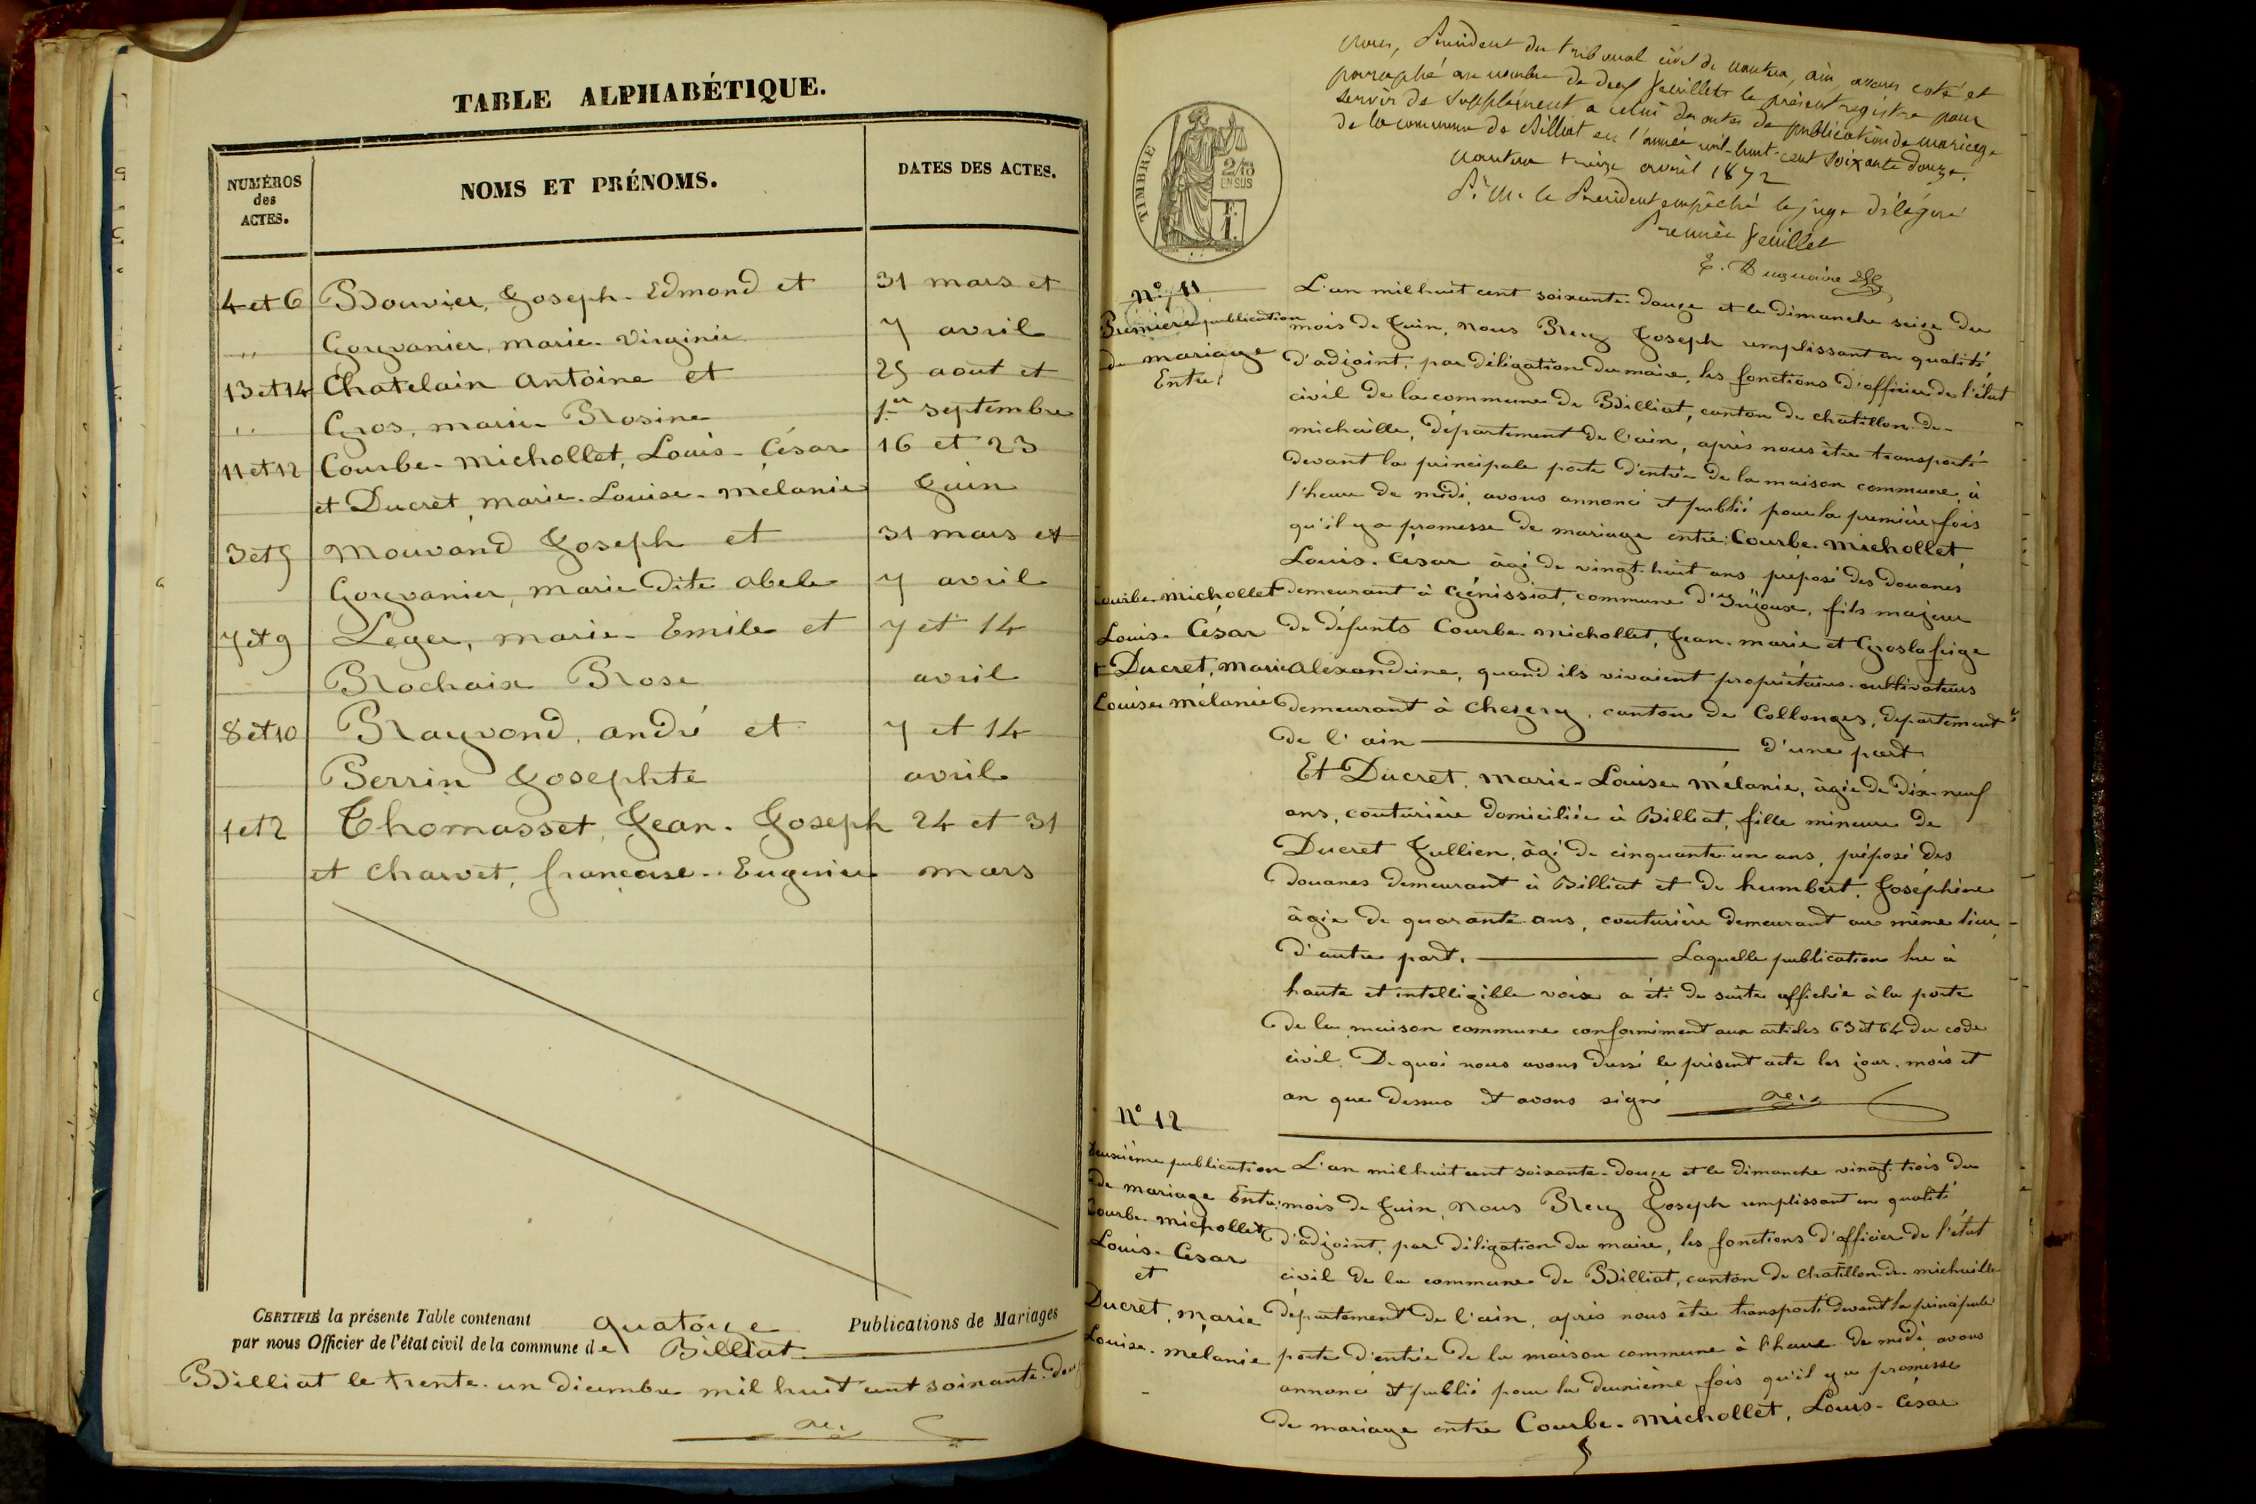 TABLE ALPHABÉTIQUE.
NUMÉROS
des
ACTES.
NOMS ET PRÉNOMS.
DATES DES ACTES.
4 et 6 Bouvier, Joseph-Edmond et 31 mars et
" Gouvanier, marie-Virginie 7 avril
13 et 14 Chatelain Antoine et 25 août et
" Gros, marie Rosine 1er septembre
11 et 12 Courbe-Michollet, Louis-César 16 et 23
et Ducret, Marie-Louise-Mélanie Juin
3 et 5 Mouvand Joseph et 31 mars et
Goyvanier, marie dite abele 7 avril
7 et 9 Leger, marie-Emile et 7 et 14
Rochaix Rose avril
8 et 10 Rayvond, andré et 7 et 14
Perrin Josephte avril
1 et 2 Thomasset, Jean-Joseph 24 et 31
et Charvet, françoise-Eugénie mars
CERTIFIÉ la présente Table contenant quatorze Publications de Mariages
par nous Officier de l'état civil de la commune de Billiat
Billiat le trente-un décembre mil huit cent soixante-douze
Président du tribunal civil de nantua, ain, avons coté et
paraphé au nombre de deux feuillets le présent registre pour
servir de supplément a celui des actes de publication de mariage
de la commune de Billiat en l'année mil-huit-cent soixante douze.
nantua treize avril 1872
Pr M. le Président empêché le juge délégué
Premier feuillet
TIMBRE
2/10
EN SUS
F.
1.
N° 11
Première publication
de mariage
Entre:
L'an mil huit cent soixante-douze et le dimanche seize du
mois de Juin, nous Rey Joseph remplissant en qualité
d'adjoint, par délégation du maire, les fonctions d'officier de l'état
civil de la commune de Billiat, canton de Chatillon-de-
michaille, département de l'ain, après nous être transporté
devant la principale porte d'entrée de la maison commune, à
l'heure de midi, avons annoncé et publié pour la première fois
qu'il y a promesse de mariage entre: Courbe-Michollet
Louis-César âgé de vingt-huit ans préposé des Douanes
Courbe-Michollet
Louis-César
et Ducret, Marie
Louise Mélanie
demeurant à Génissiat, commune d'Injoux, fils majeur
de défunts Courbe-Michollet, Jean-marie et Groslafeige
Alexandrine, quand ils vivaient propriétaires-cultivateurs
demeurant à Chezery, canton de Collonges, département
de l'ain d'une part
Et Ducret, Marie-Louise Mélanie, âgée de dix-neuf
ans, couturière domiciliée à Billiat, fille mineure de
Ducret Jullien, âgé de cinquante-un ans, préposé des
douanes demeurant à Billiat et de humbert, Joséphine
âgée de quarante ans, couturière demeurant au même lieu,
d'autre part. Laquelle publication lue à
haute et intelligible voix a été de suite affichée à la porte
de la maison commune conformément aux articles 63 et 64 du code
civil. De quoi nous avons dressé le présent acte les jour, mois et
an que dessus et avons signé
N° 12
Deuxième publication
de mariage Entre:
Courbe-Michollet
Louis-César
et
Ducret, Marie
Louise-Mélanie
L'an mil huit cent soixante-douze et le dimanche vingt-trois du
mois de Juin, nous Rey Joseph remplissant en qualité
d'adjoint, par délégation du maire, les fonctions d'officier de l'état
civil de la commune de Billiat, canton de Chatillon-de-michaille
département de l'ain, après nous être transporté devant la principale
porte d'entrée de la maison commune à l'heure de midi, avons
annoncé et publié pour la deuxième fois qu'il y a promesse
de mariage entre Courbe-Michollet, Louis-César